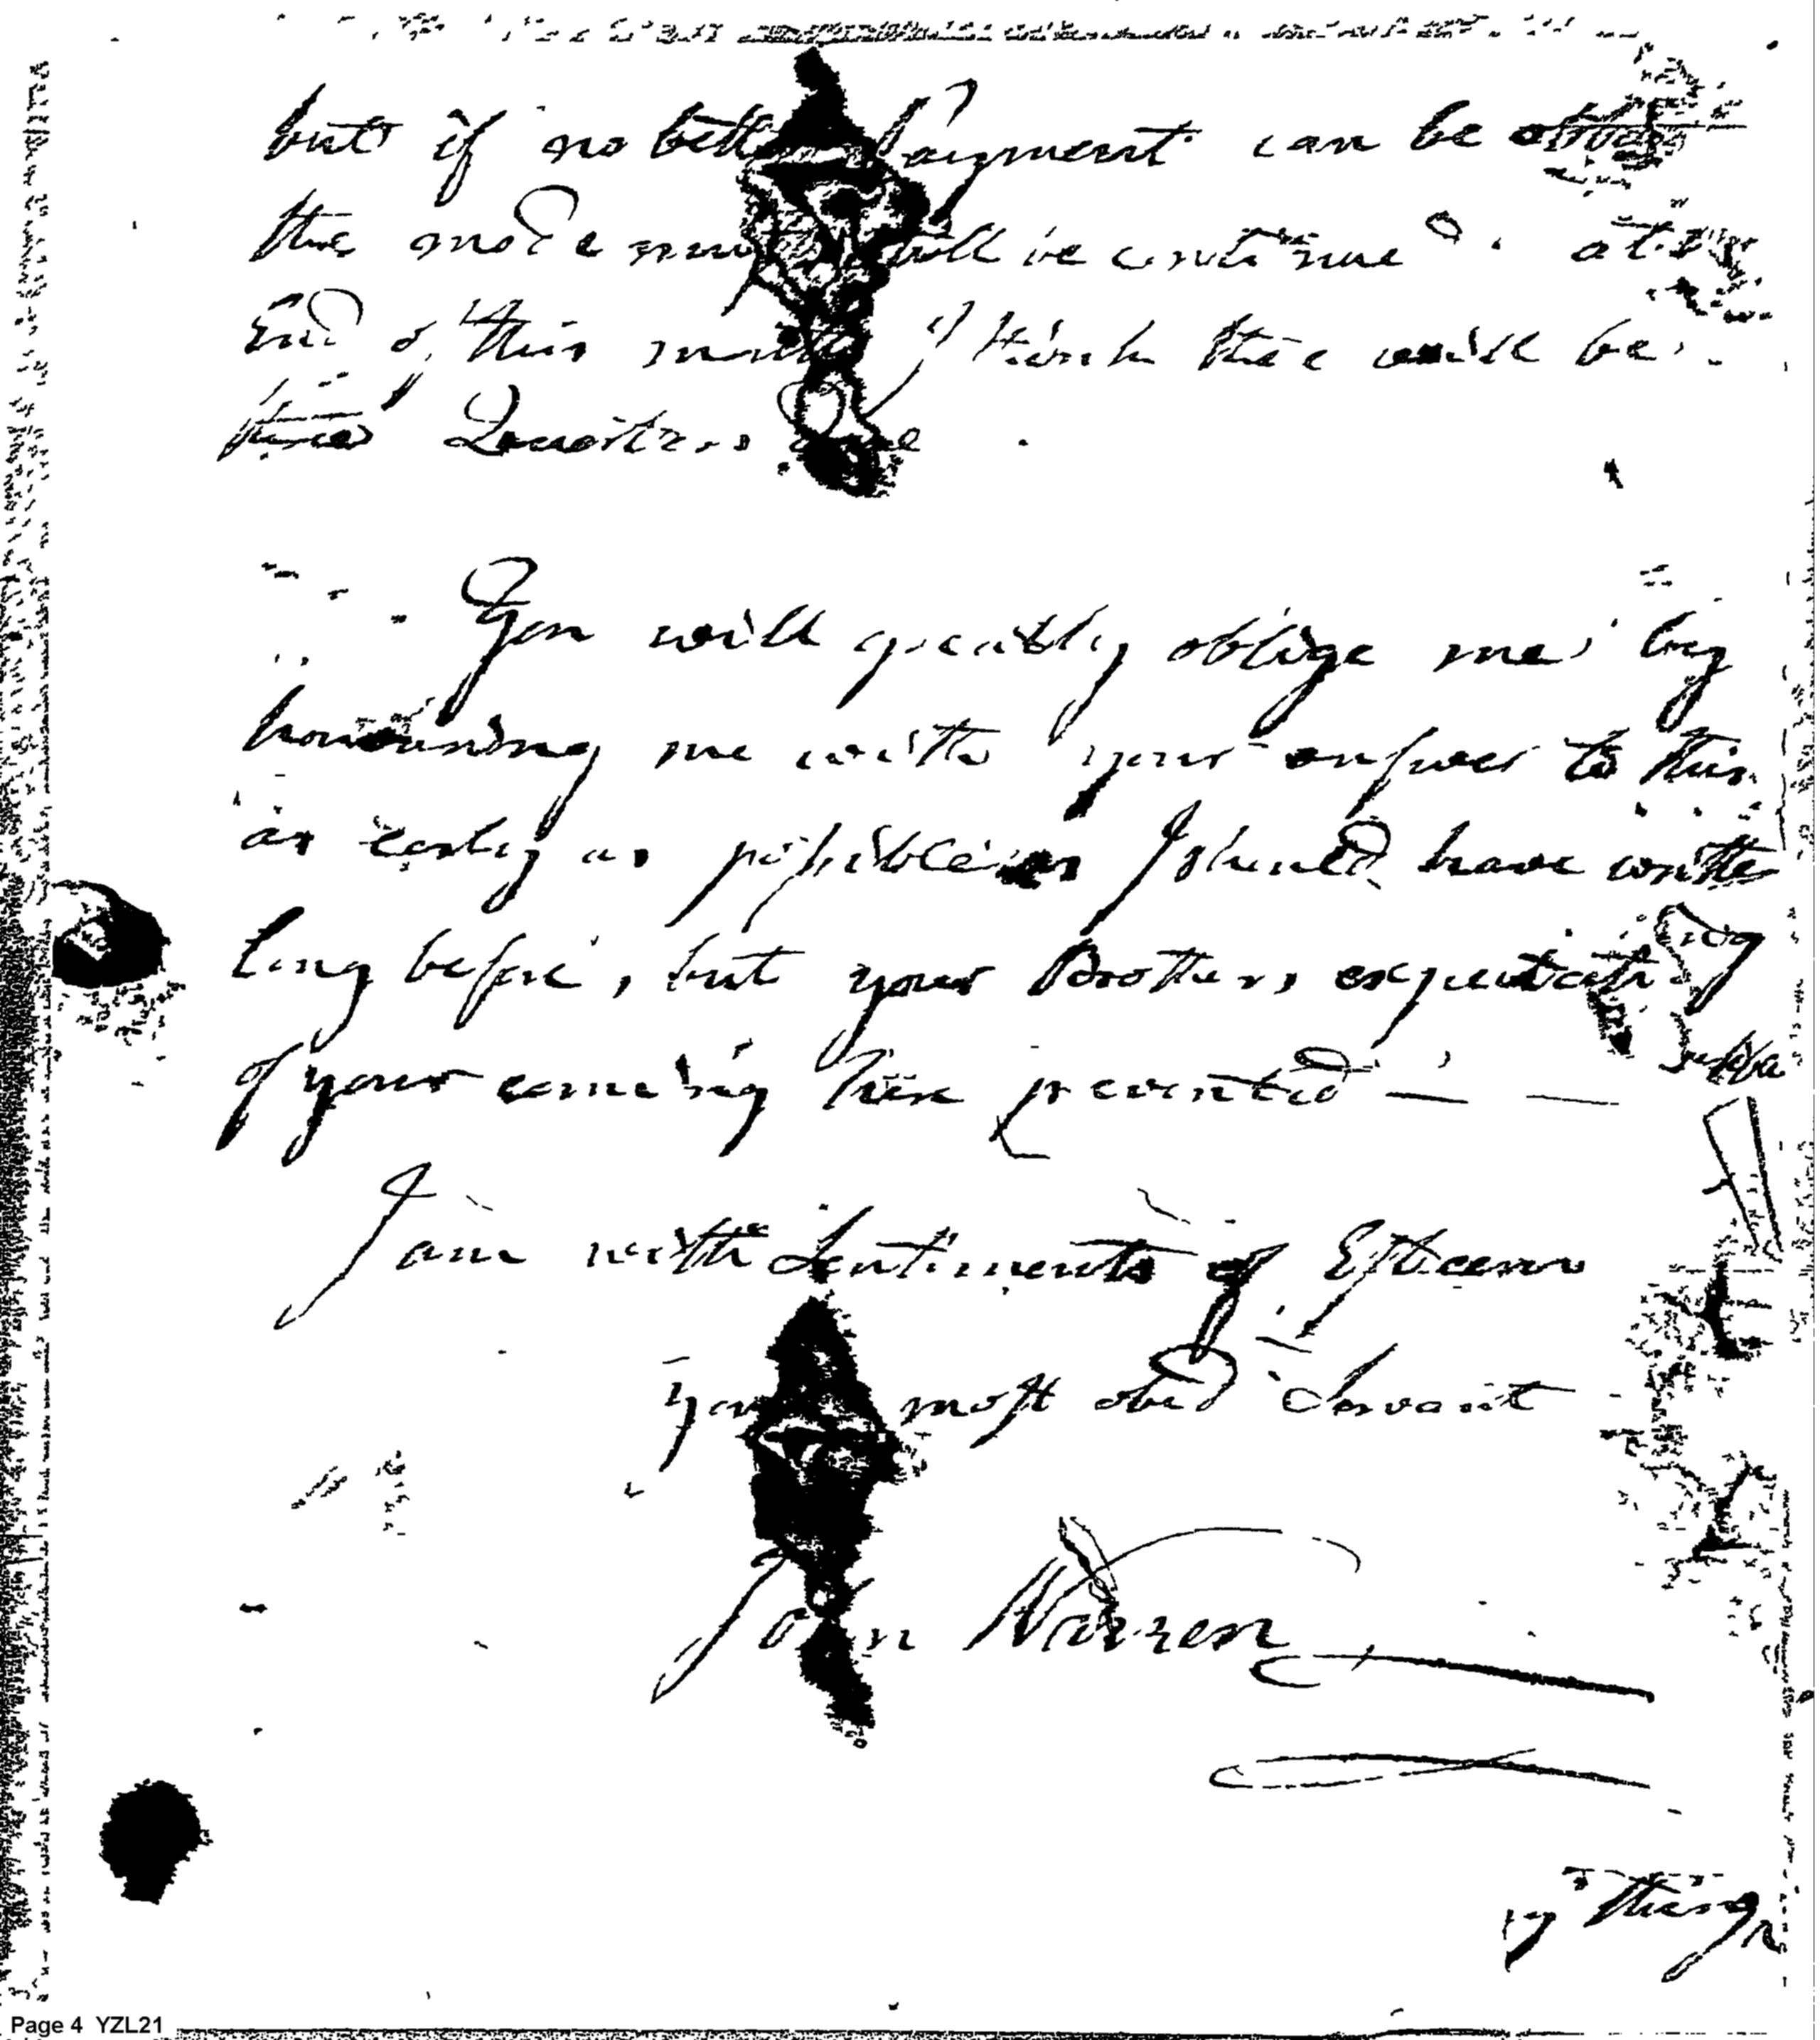 but if no better Payment can be
the mode must still be continued. at the
End of this month I think there will be
three Quarters due
You will greatly oblige me by
honouring me with your answer to this
as early as possible I should have written
long before, but your Brothers expectation
of your coming here prevented — —
I am with Sentiments of Esteem
your most obed Servant
John Warren
things
Page 4 YZL21